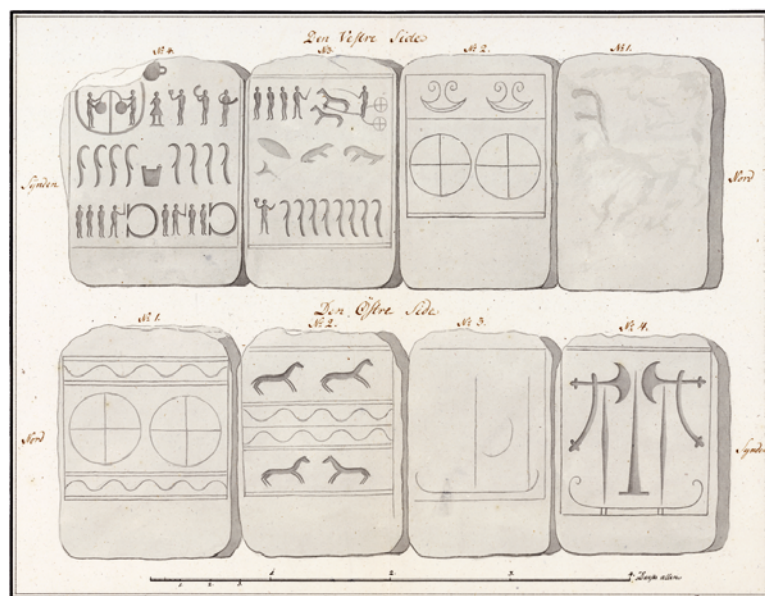 Den Vestre Side
No 4.
No 3.
No 2.
No 1.
Synden
Nord
Den Östre Side
No 1.
No 2.
No 3.
No 4.
Nord
Synden
1
2
3
1
2
3
4
alen